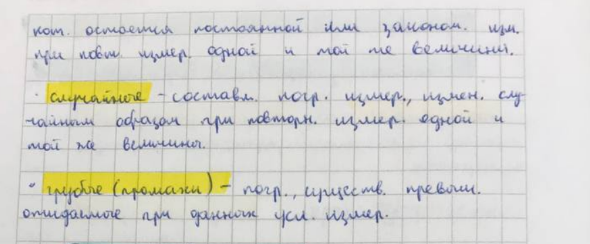 кот. остается постоянной или законом. изм.
при повт. измер. одной и той же величины.
· случайные - составл. погр. измер., измен. слу-
чайным образом при повторн. измер. одной и
той же величины.
· грубые (промахи) - погр., существ. превыш.
ожидаемые при данных усл. измер.